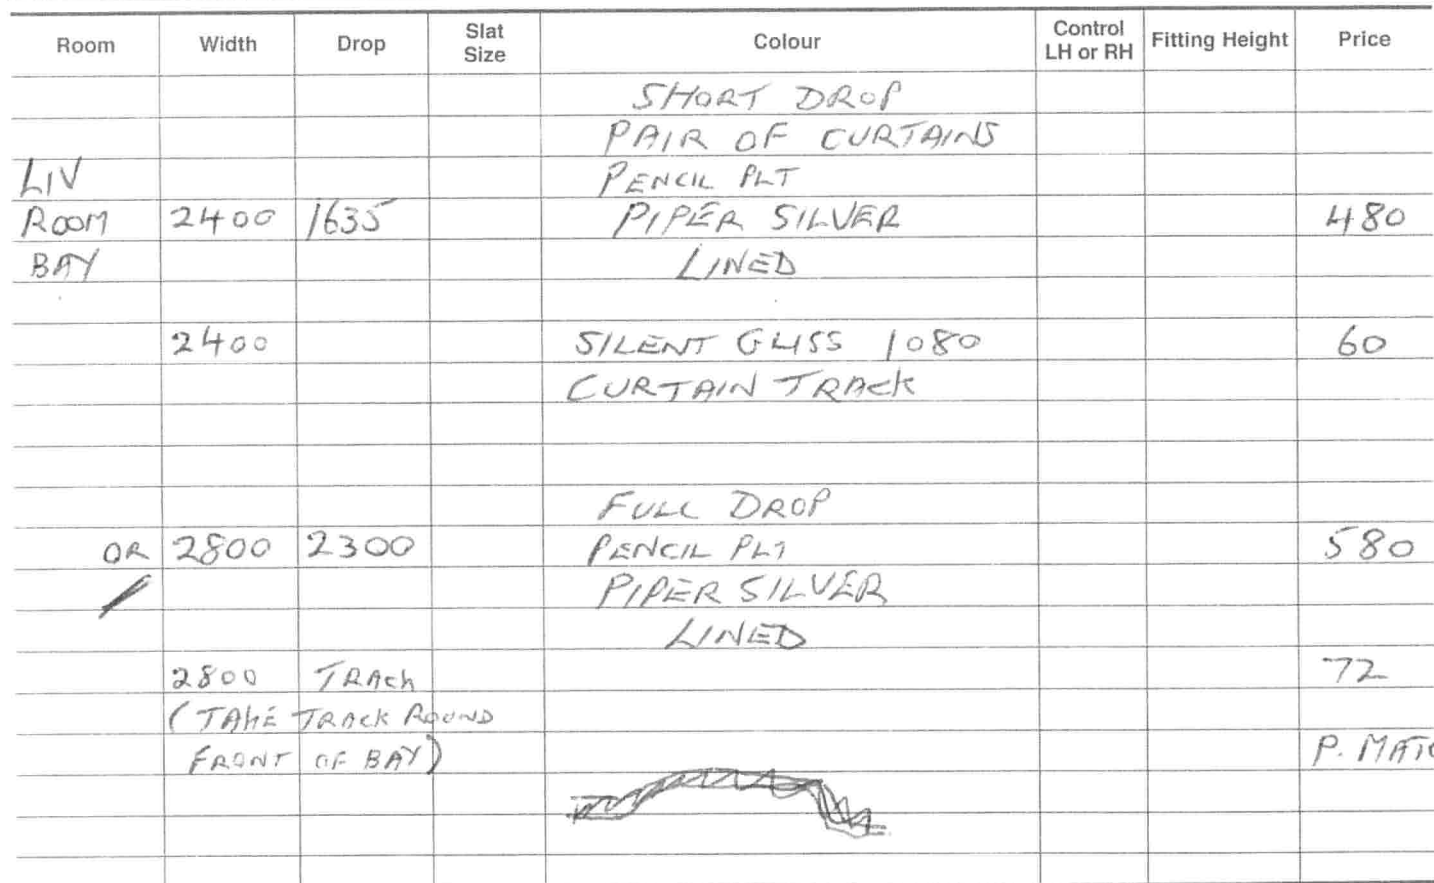 Room Width Drop Slat Size Colour Control LH or RH Fitting Height Price
SHORT DROP
PAIR OF CURTAINS
LIV PENCIL PLT
ROOM 2400 1635 PIPER SILVER 480
BAY LINED
2400 SILENT GLISS 1080 60
CURTAIN TRACK
FULL DROP
OR 2800 2300 PENCIL PLT 580
PIPER SILVER
LINED
2800 TRACK 72
(TAKE TRACK ROUND
FRONT OF BAY) P. MATC